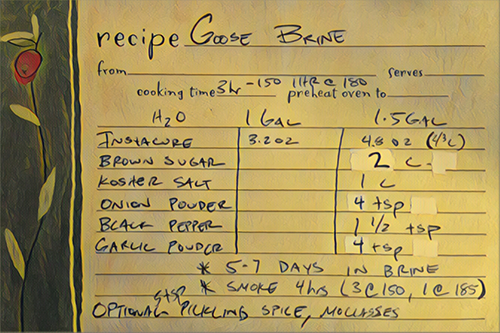 recipe Goose Brine
from serves
cooking time 3hr -150 1HR @ 180 preheat oven to
H2O 1 GAL 1.5 GAL
INSTACURE 3.2 OZ 4.8 OZ (4/3 C)
BROWN SUGAR 2 C
KOSHER SALT 1 C
ONION POWDER 4 tsp
BLACK PEPPER 1 1/2 tsp
GARLIC POWDER 4 tsp
* 5-7 DAYS IN BRINE
* SMOKE 4hrs (3 @ 150, 1 @ 185)
OPTIONAL PICKLING SPICE, MOLLASSES